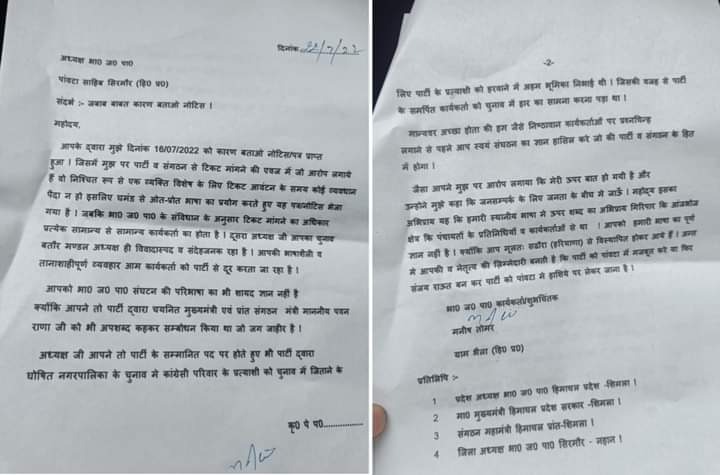 दिनांक 22/7/22
अध्यक्ष भा0 ज0 पा0
पांवटा साहिब सिरमौर (हि0 प्र0)
संदर्भ :- जबाब बाबत कारण बताओ नोटिस !
महोदय,
आपके द्वारा मुझे दिनांक 16/07/2022 को कारण बताओ नोटिस/पत्र प्राप्त
हुआ ! जिसमें मुझ पर पार्टी व संगठन से टिकट मांगने की एवज में जो आरोप लगाये
हैं वो निश्चित रुप से एक व्यक्ति विशेष के लिए टिकट आवंटन के समय कोई व्यवधान
पैदा न हो इसलिए घमंड से ओत-प्रोत भाषा का प्रयोग करते हुए यह पत्र/नोटिस भेजा
गया है ! जबकि भा0 ज0 पा0 के संविधान के अनुसार टिकट मांगने का अधिकार
प्रत्येक सामान्य से सामान्य कार्यकर्ता का होता है ! दूसरा अध्यक्ष जी आपका चुनाव
बतौर मण्डल अध्यक्ष ही विवादास्पद व संदेहजनक रहा है ! आपकी भाषाशैली व
तानाशाहीपूर्ण व्यवहार आम कार्यकर्ता को पार्टी से दूर करता जा रहा है !
आपको भा0 ज0 पा0 संघटन की परिभाषा का भी शायद ज्ञान नहीं है
क्योंकि आपने तो पार्टी द्वारा चयनित मुख्यमंत्री एवं प्रांत संगठन मंत्री माननीय पवन
राणा जी को भी अपशब्द कहकर सम्बोधन किया था जो जग जाहीर है !
अध्यक्ष जी आपने तो पार्टी के सम्मानित पद पर होते हुए भी पार्टी द्वारा
घोषित नगरपालिका के चुनाव मे कांग्रेसी परिवार के प्रत्याशी को चुनाव में जिताने के
कृ0 पे प0...............
-2-
लिए पार्टी के प्रत्याशी को हरवाने में अहम भूमिका निभाई थी ! जिसकी वजह से पार्टी
के समर्पित कार्यकर्ता को चुनाव में हार का सामना करना पड़ा था !
मान्यवर अच्छा होता की हम जैसे निष्ठावान कार्यकर्ताओं पर प्रश्नचिन्ह
लगाने से पहले आप स्वयं संघठन का ज्ञान हासिल करे जो की पार्टी व संगठन के हित
में होगा !
जैसा आपने मुझ पर आरोप लगाया कि मेरी ऊपर बात हो गयी है और
उन्होने मुझे कहा कि जनसम्पर्क के लिए जनता के बीच मे जाओं ! महोदय इसका
अभिप्राय यह कि हमारी स्थानीय भाषा मे ऊपर शब्द का अभिप्राय गिरिपार कि आंजभोज
क्षेत्र कि पंचायतों के प्रतिनिधियों व कार्यकर्ताओं से था ! आपको हमारी भाषा का पूर्ण
ज्ञान नहीं है ! क्योंकि आप मूलतः सढौरा (हरियाणा) से विस्थापित होकर आये हैं ! अन्त
मे आपकी व नेतृत्व की ज़िम्मेदारी बनती है कि पार्टी को पांवटा में मजबूत करे या फिर
संजय राऊत बन कर पार्टी को पांवटा मे हाशिये पर लेकर जाना है !
भा0 ज0 पा0 कार्यकर्ता/शुभचिंतक
मनीष तोमर
ग्राम भैला (हि0 प्र0)
प्रतिलिपि :-
1 प्रदेश अध्यक्ष भा0 ज0 पा0 हिमाचल प्रदेश -शिमला !
2 मा0 मुख्यमंत्री हिमाचल प्रदेश सरकार -शिमला !
3 संगठन महामंत्री हिमाचल प्रांत-शिमला !
4 जिला अध्यक्ष भा0 ज0 पा0 सिरमौर - नहान !